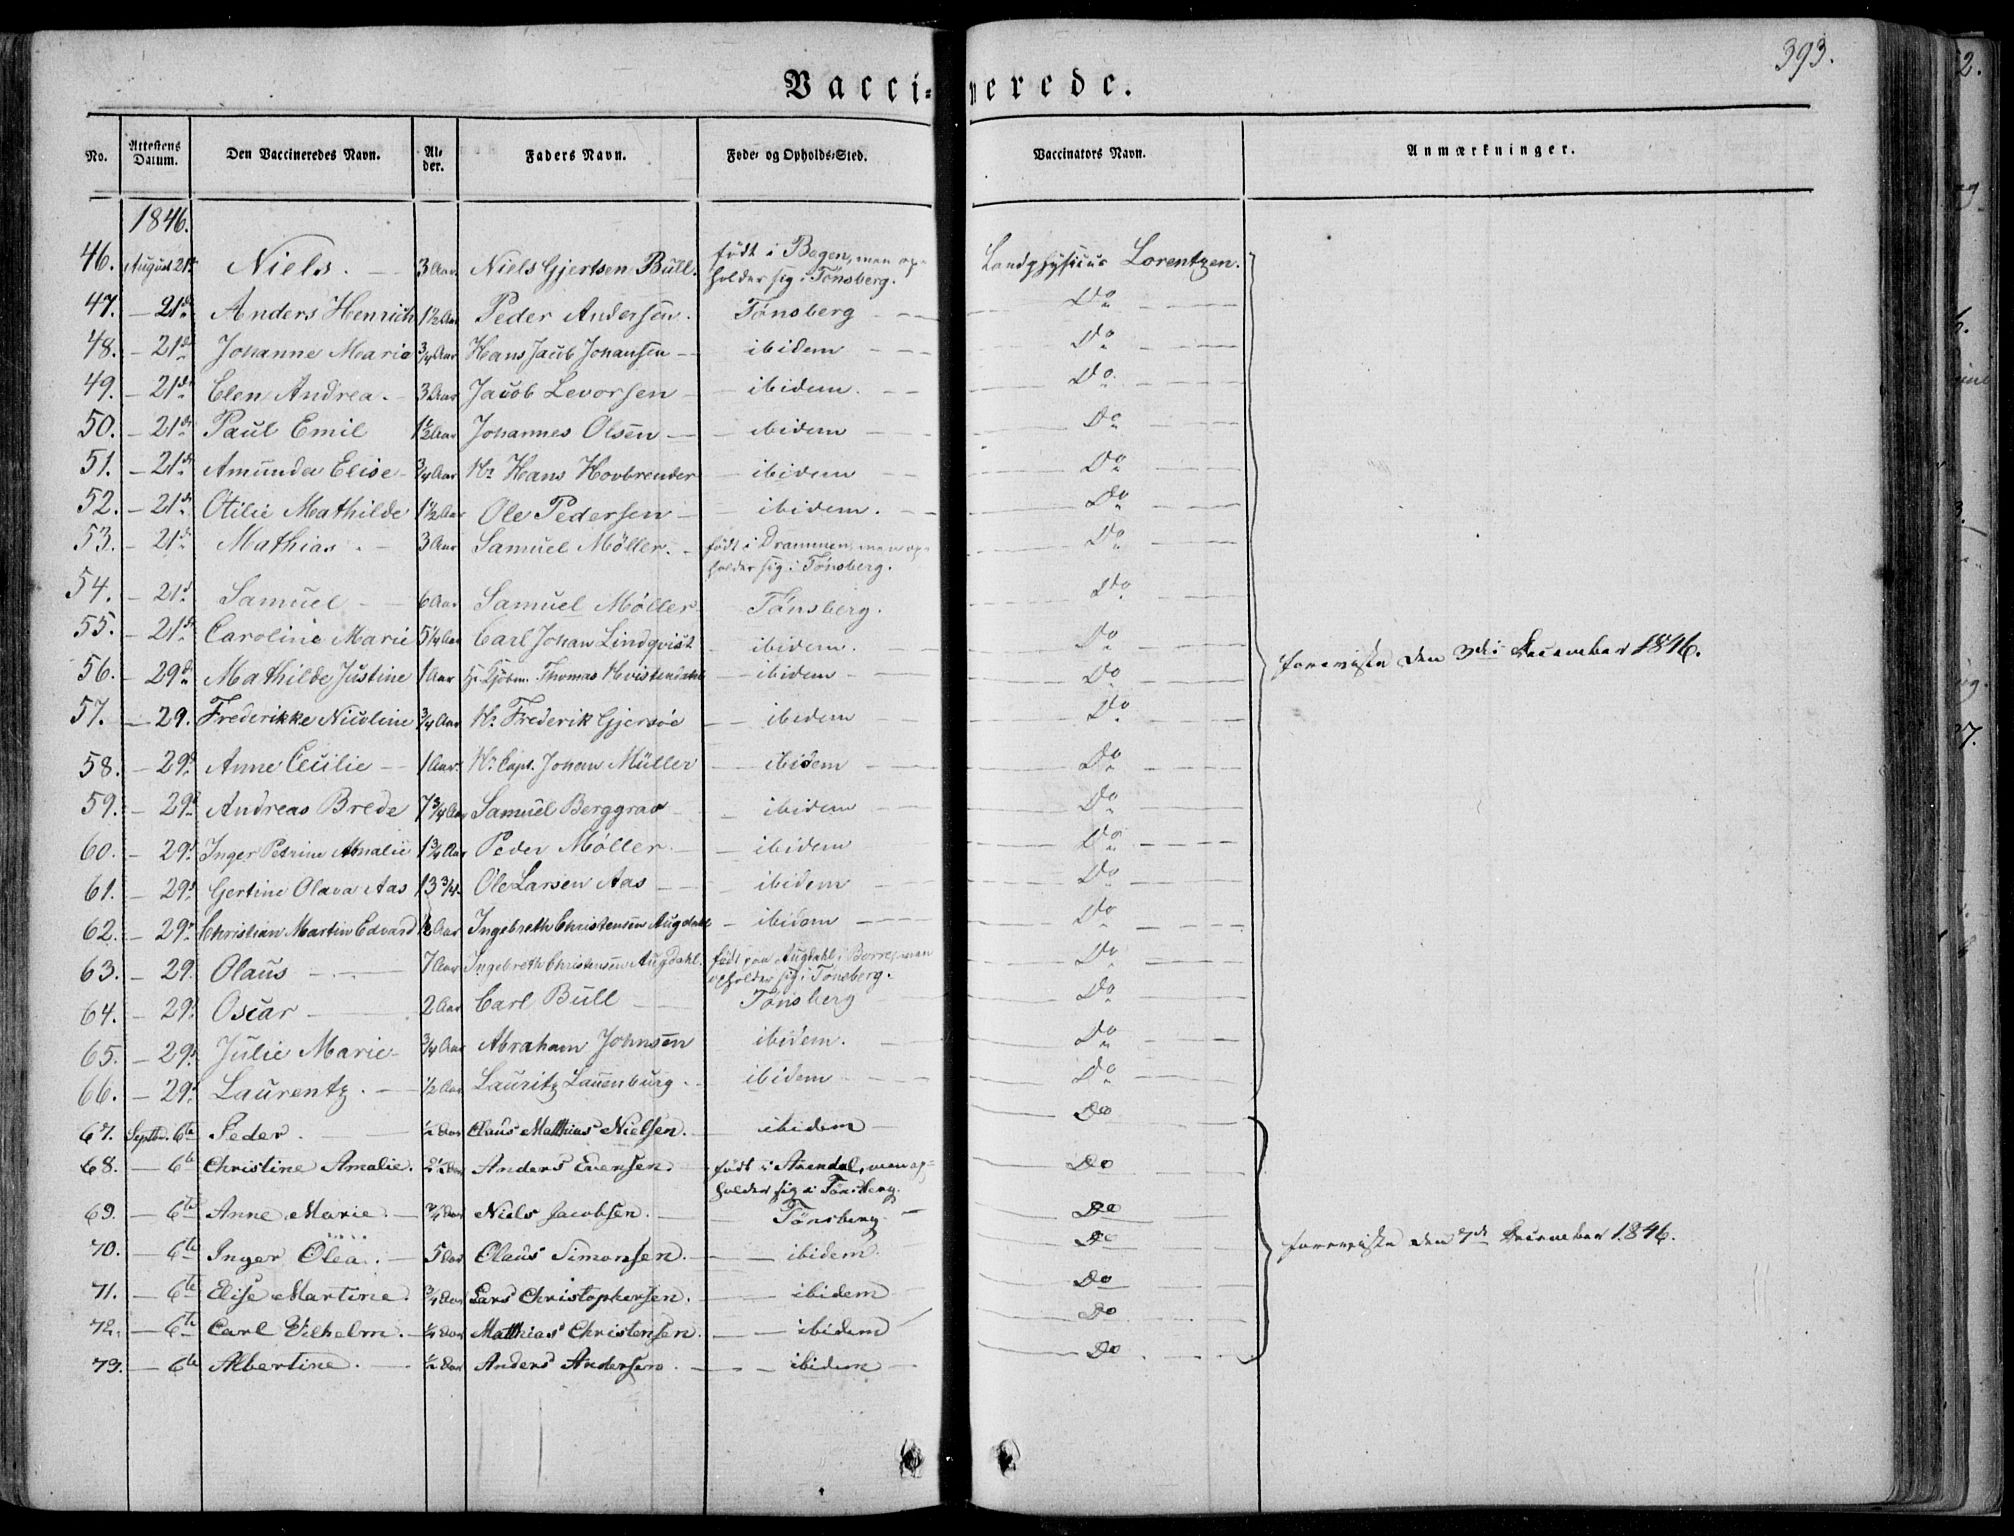 393.
Vacci- nerede.
No. Attestens Datum. Den Vaccineredes Navn. Alder. Faders Navn. Føde- og Opholds-Sted. Vaccinators Navn. Anmærkninger.
1846.
46. August 21de Niels. — 3 Aar. Niels Gjertsen Bull. født i Bogen, men op- holder sig i Tønsberg. Landphysicus Lorentzen.
47. — 21de Anders Henrich 1½ Aar Peder Andersen. Tønsberg — Do
48. — 21de Johanne Marie ¾ Aar Hans Jacob Johansen — ibidem — Do
49. — 21de Elen Andrea. — 3 Aar Jacob Levorsen — ibidem. — Do
50. — 21de Paul Emil 1½ Aar Johannes Olsen — ibidem — Do
51. — 21de Amunda Elise — ¾ Aar Hr Hans Hovbrender — ibidem — Do
52. — 21de Otilie Mathilde 1½ Aar Ole Pedersen — ibidem. — Do
53. — 21de Mathias. — 3 Aar Samuel Möller. — født i Drammen, men op- holder sig i Tønsberg. Do
54. — 21de Samuel — 6 Aar Samuel Möller — Tønsberg. Do
55. — 21de Caroline Marie 5¼ Aar Carl Johan Lindqvist — ibidem. — Do
56. — 29de Mathilde Justine 1 Aar Hr Kjøbm. Thomas Hvistendahl — ibidem — Do
57. — 29. Frederikke Nicoline ¾ Aar Hr Frederik Gjersöe — ibidem Do
58. — 29de Anne Cecilie — 1 Aar. Hr Capt. Johan Müller — ibidem — Do
59. — 29de Andreas Brede 7¾ Aar Samuel Berggrav — ibidem — Do
60. — 29de Inger Petrine Amalie 1¾ Aar Peder Möller. — ibidem Do
61. — 29de Gertine Olava Aas 13¾. Ole Larsen Aas — ibidem — Do
62. — 29de Christian Martin Edvard ½ Aar Ingebreth Christensen Augdahl — ibidem — Do
63. — 29. Olaus — 7 Aar Ingebreth Christensen Augdahl. født paa Augdahl i Borre, men opholder sig i Tønsberg. Do
64. — 29de Oscar — 2 Aar Carl Bull — Tønsberg Do
65. — 29de Julie Marie — ¾ Aar Abraham Johnsen ibidem. — Do
66. — 29de Laurentz. — ½ Aar Lauritz Lauenburg. — ibidem — Do
foreviste den 3die December 1846.
67. Septbr. 6te Peder. — Aar Claus Matthias Nielsen. — ibidem — Do
68. — 6te Christine Amalie. Aar Anders Evensen. født i Arendal, men op- holder sig i Tønsberg. Do
69. — 6te Anne Marie. — ¾ Aar Niels Jacobsen. — Tønsberg — Do
70. — 6te Inger Olea. — 5 Aar Olaus Simonsen. — ibidem. Do
71. — 6te Elise Martine. ¾ Aar Lars Christophersen. — ibidem — Do
72. — 6te Carl Vilhelm. — Aar Matthias Christensen. — ibidem — Do
73. — 6te Albertine. — Aar Anders Andersen. — ibidem — Do
foreviste den 7de December 1846.